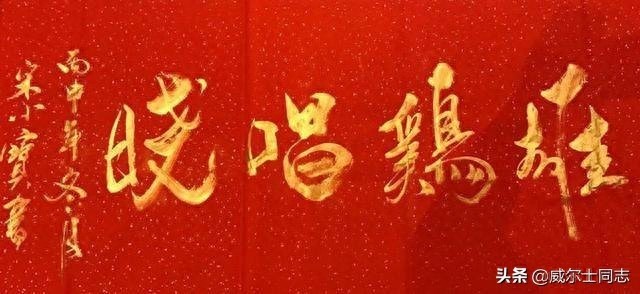 雄鷄唱晓
丙申年冬月
宋小寶書
头条 @威尔士同志